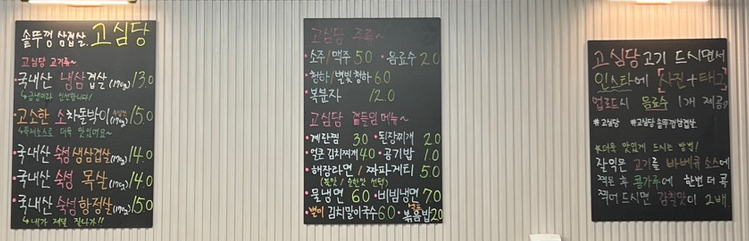 솥뚜껑 삼겹살, 고심당
고심당 고기류~
·국내산 냉삼겹살(170g) 13.0
·고소한 소차돌박이(170g) 15.0
·국내산 숙성 생삼겹살(170g) 14.0
·국내산 숙성 목살(170g) 14.0
·국내산 숙성 항정살(170g) 15.0
↳ 내가 제일 잘나가!!
고심당 주류~
·소주/맥주 5.0 ·음료수 2.0
·청하/별빛청하 6.0
·복분자 12.0
고심당 곁들임 메뉴~
·계란찜 3.0 ·된장찌개 2.0
·얼큰 김치찌개 4.0 ·공기밥 1.0
·해장라면 / 짜파게티 5.0
·물냉면 6.0 ·비빔냉면 7.0
·별미 김치말이국수 6.0 ·볶음밥 2.0
고심당 고기 드시면서
인스타에 [사진+태그]
업로드시 음료수 1개 제공
#고심당 #고심당솥뚜껑삼겹살
*더욱 맛있게 드시는 방법!
잘익은 고기를 바베큐 소스에
찍은 후 콩가루에 한번 더 콕
찍어 드시면 감칠맛이 2배